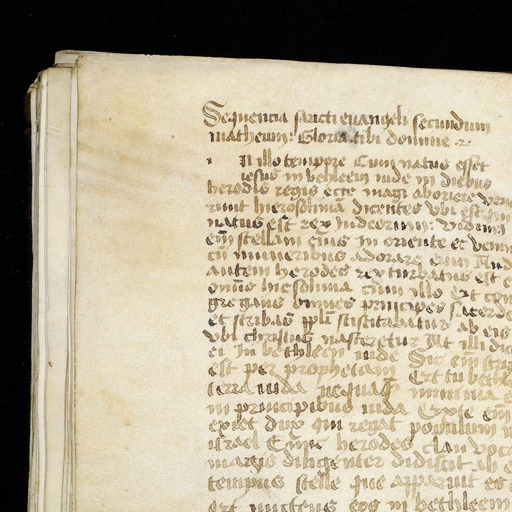 Sequencia sancti euangeli secundum
matheum: Gloria tibi domine
In illo tempore Cum natus esset
iesus in bethleem iude in diebus
herodis regis ecce magi ab oriente vene
runt hierosolimā dicentes Vbi est qui
natus est rex iudeorum: vidimus
em̄ stellam eius in oriente et venim
cū muneribus adorare eum Aud
autem herodes rex turbatus est e
omīs hierosolima cum illo Et con
gregans omnes principes sacerdo
et scribas ppli sciscitabatur ab eis
Vbi christus nasceretur At illi dix
ei In bethleem iude Sic em̄ scrip
est per prophetam Et tu bethle
terra iuda nequaq̄ minima e
in principibus iuda Ex te em̄
exiet dux qui regat populum m
israel Tunc herodes clam voca
magis diligenter didiscit ab e
tempus stelle que apparuit eis
Et mittens eos in bethleem